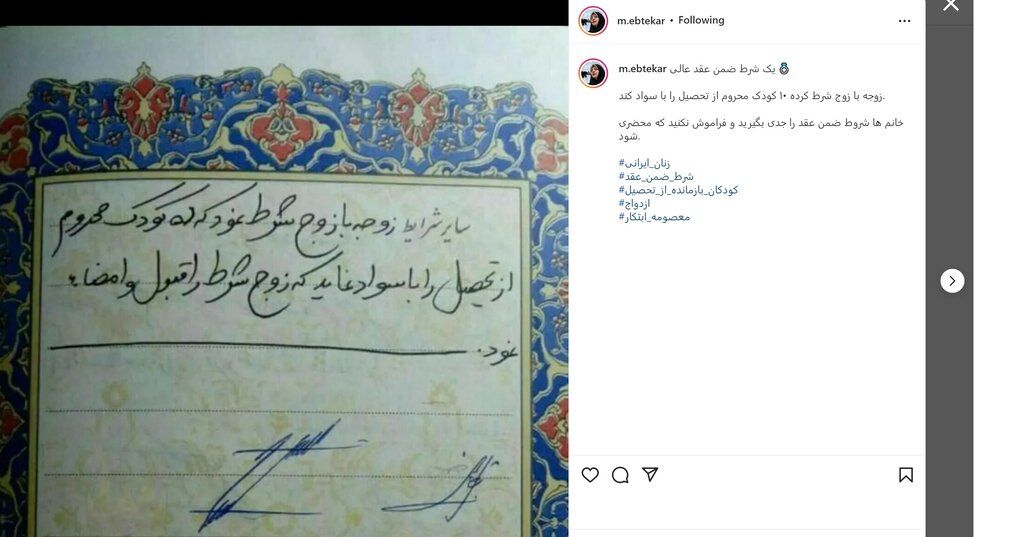 سایر شرایط زوجه با زوج شرط نمود که ده کودک محروم
از تحصیل را با سواد نماید که زوج شرط را قبول و امضاء
نمود.
m.ebtekar • Following
m.ebtekar یک شرط ضمن عقد عالی 💍
زوجه با زوج شرط کرده ۱۰ کودک محروم از تحصیل را با سواد کند.
خانم ها شروط ضمن عقد را جدی بگیرید و فراموش نکنید که محضری
شود.
#زنان_ایرانی
#شرط_ضمن_عقد
#کودکان_بازمانده_از_تحصیل
#ازدواج
#معصومه_ابتکار